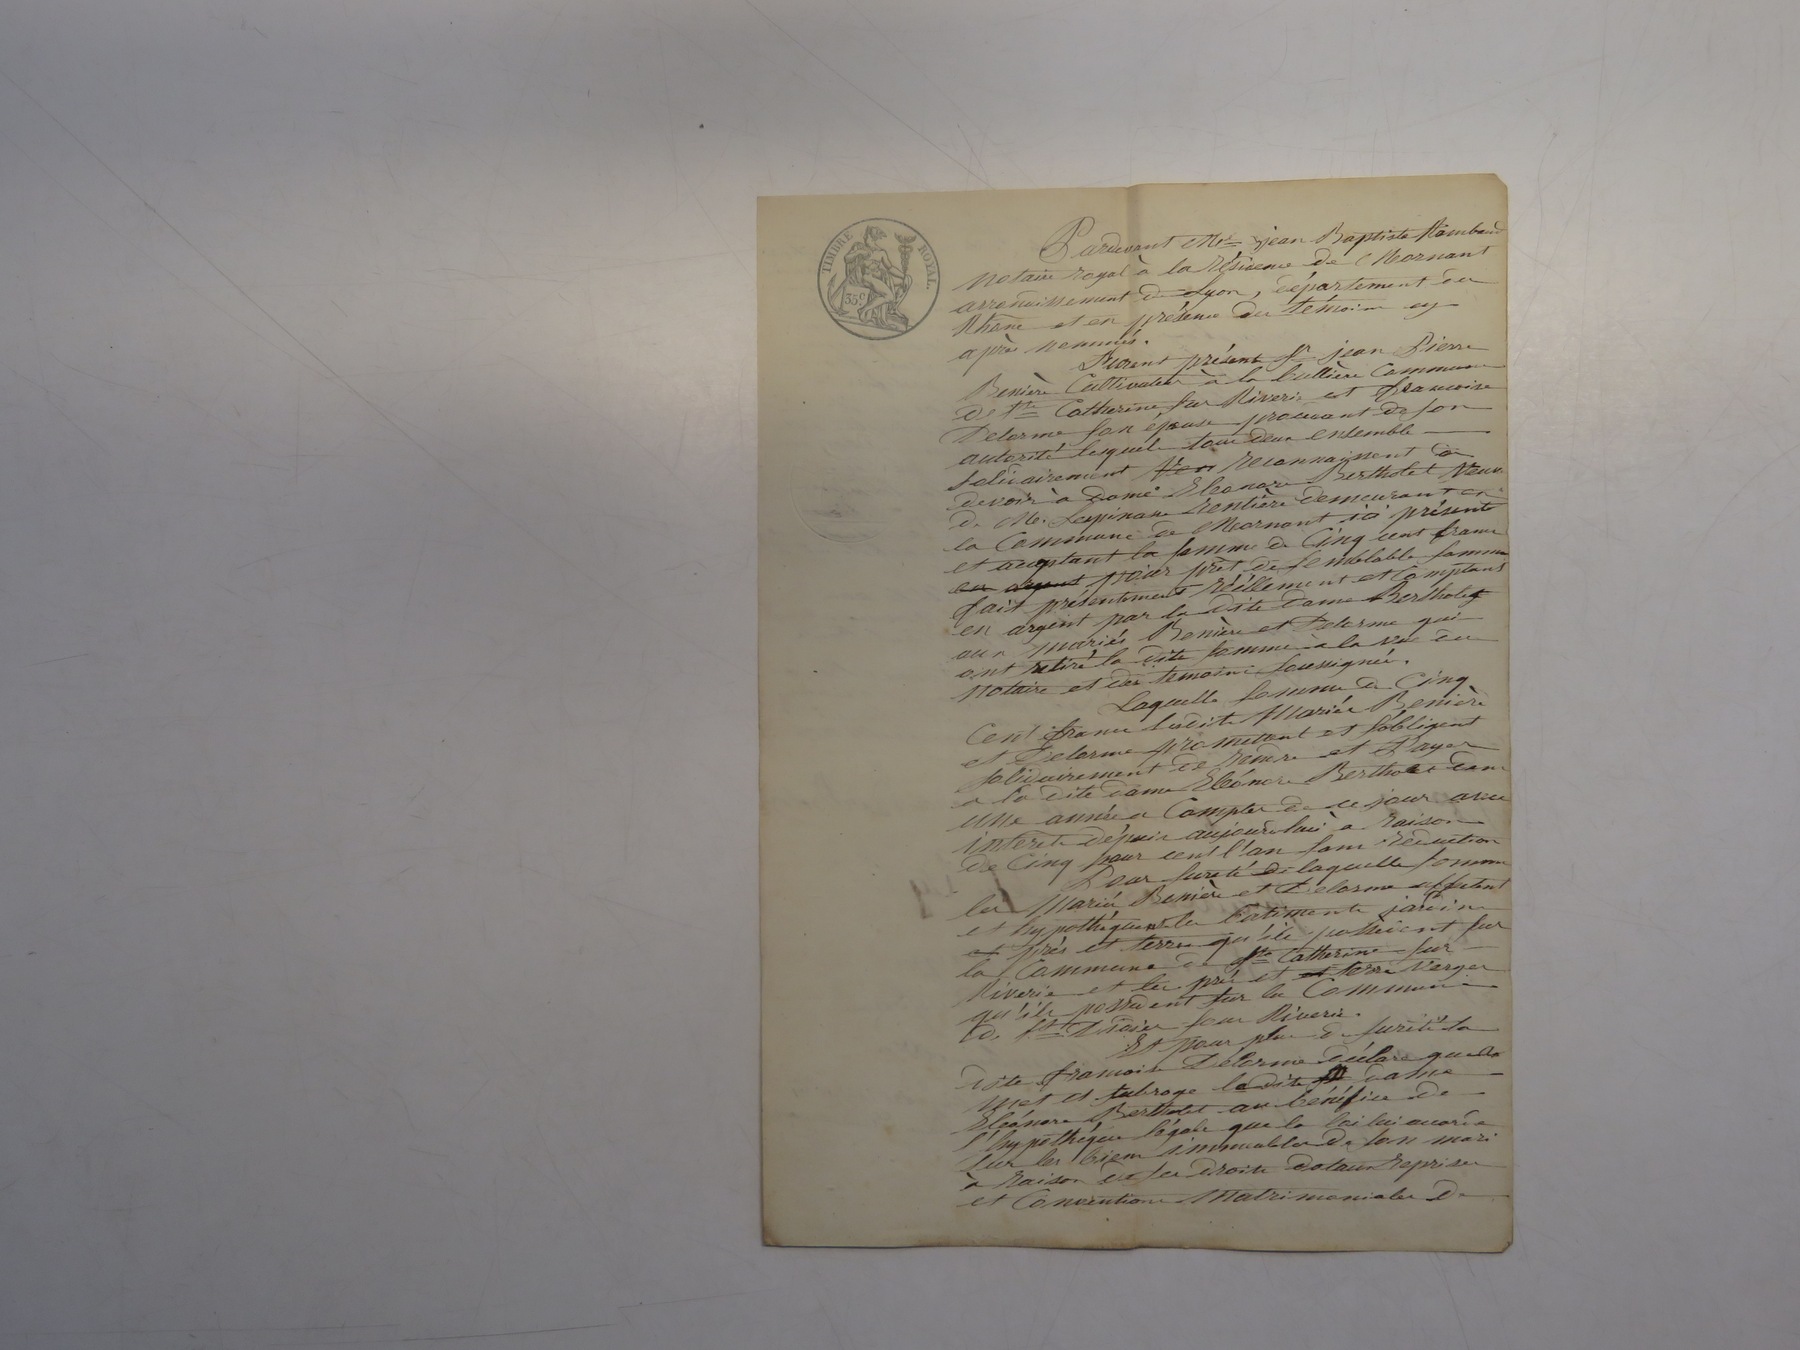 TIMBRE ROYAL.
35c.
Pardevant Me. jean Baptiste Rambaud
Notaire royal à la résidence de Mornant
arrondissement de Lyon, département du
Rhône et en présence des témoins cy
après nommés.
Furent présent Sr. jean Pierre
Benière Cultivateur à la Commune
de Ste. Catherine sur Riverie et françoise
Delorme son épouse procédant de son
autorité lesquels tous deux ensemble
solidairement reconnaissent
devoir à dame Eléonore Bertholet Veuve
de Mr. Lespinasse Rentière demeurant en
la Commune de Mornant ici présente
et acceptant la somme de Cinq cent francs
en argent pour prêt de semblable somme
fait présentement réellement et Comptant
en argent par la dite dame Bertholet
aux mariés Benière et Delorme qui
ont retiré la dite somme à la vue du
Notaire et des temoins soussignés.
Laquelle somme de Cinq
Cent francs lesdits Mariés Benière
et Delorme promettent et s'obligent
solidairement de rendre et Payer
a la dite dame Eléonore Berthelet dans
une année a Compter de ce jour avec
intérêts dépuis aujourd'hui a raison
de Cinq pour cent l'an sans réduction
Pour sureté de laquelle somme
les Mariés Benière et Delorme affectent
et hypothéquent les batiments jardin
et prés et terres qu'ils possèdent sur
la Commune de Ste. Catherine sur
Riverie et les prés et et terre Verger
qu'ils possèdent sur la Commune
de St. Didier sous Riverie.
Et pour plus de sureté la
dite françoise Delorme déclare quelle
met et subroge la dite dame
Eléonore Berthelet au bénéfice de
l'hypothéque légale que la loi lui accorde
sur les biens immeubles de son mari
à raison de ses droits dotaux reprises
et Conventions Matrimoniales de